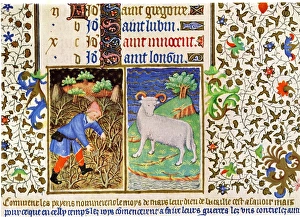 A Saint gregoire
Saint lubin
Saint innocent
Saint longin
Comment les payens nommerent le moys de mars leur dieu de bataille cest a savoir mars
pour ce que en celly temps les roys commencerent a faire leurs guerres les uns contre les au